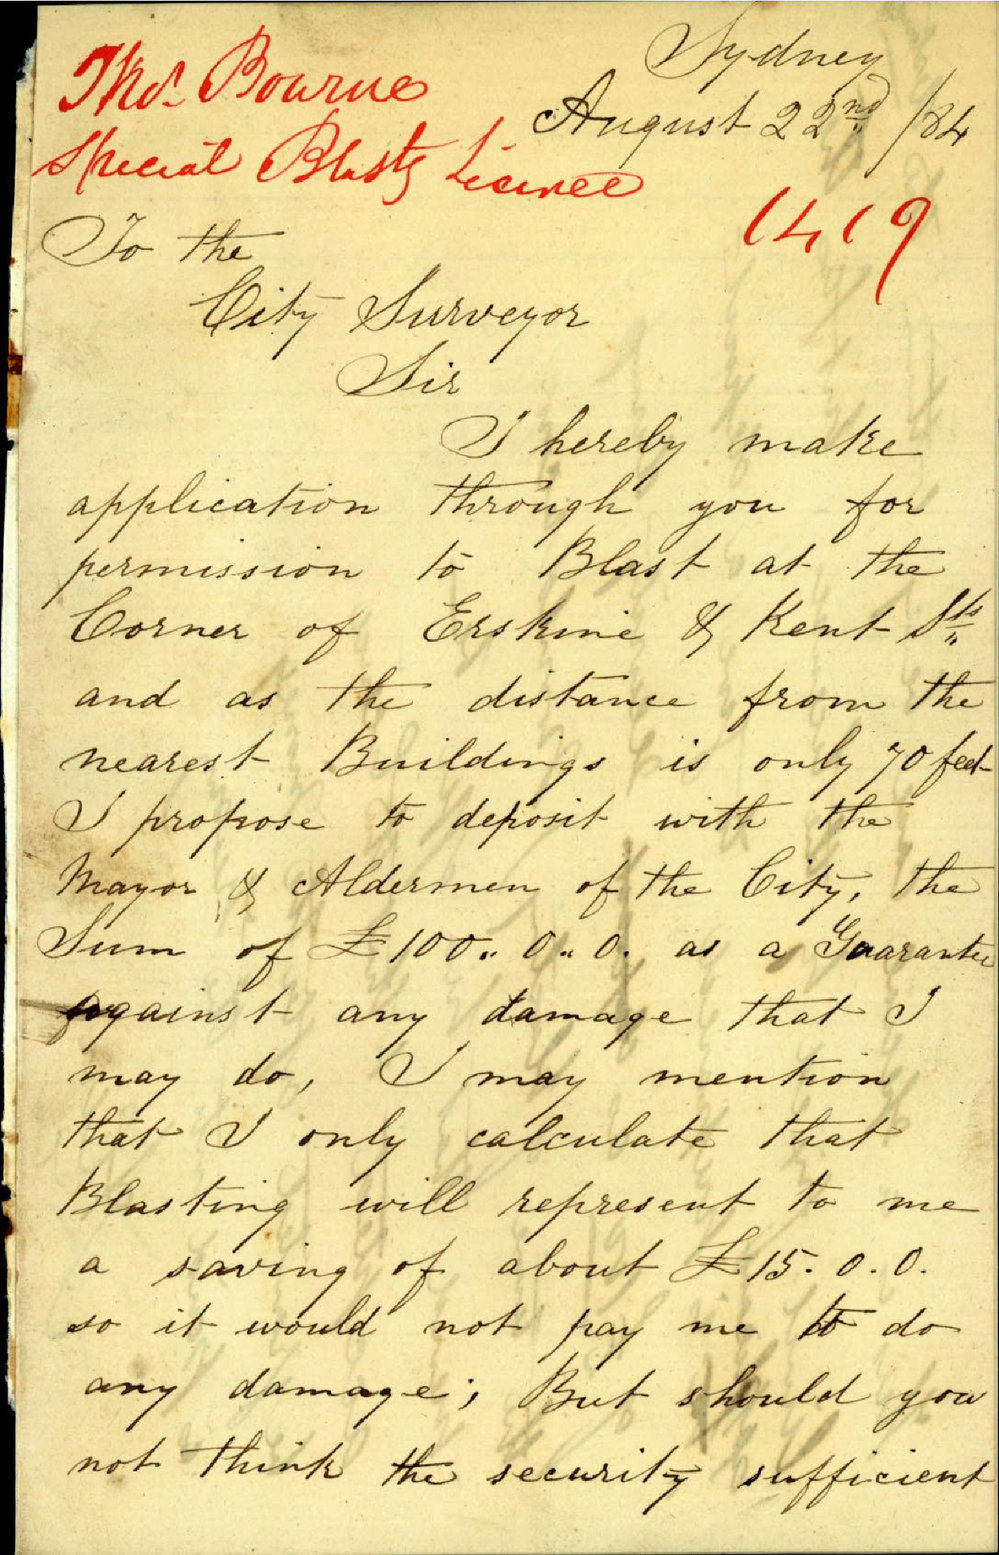 Thos. Bourne
Special Blastg Licence
Sydney
August 22nd /84
1419
To the
City Surveyor
Sir
I hereby make
application through you for
permission to Blast at the
Corner of Erskine & Kent Sts
and as the distance from the
nearest Buildings is only 70 feet
I propose to deposit with the
Mayor & Aldermen of the City, the
Sum of £100.. 0.. 0. as a Guarantee
against any damage that I
may do, I may mention
that I only calculate that
Blasting will represent to me
a saving of about £15. 0. 0.
so it would not pay me to do
any damage; But should you
not think the security sufficient